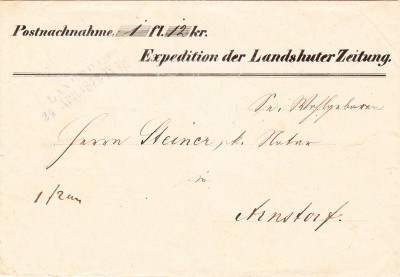 Postnachnahme. 1 fl. 12 kr.
Expedition der Landshuter Zeitung.
LANDSHUT
Sr. Wohlgeboren
Herrn Steiner, k. Notar
in
Arnstorf.